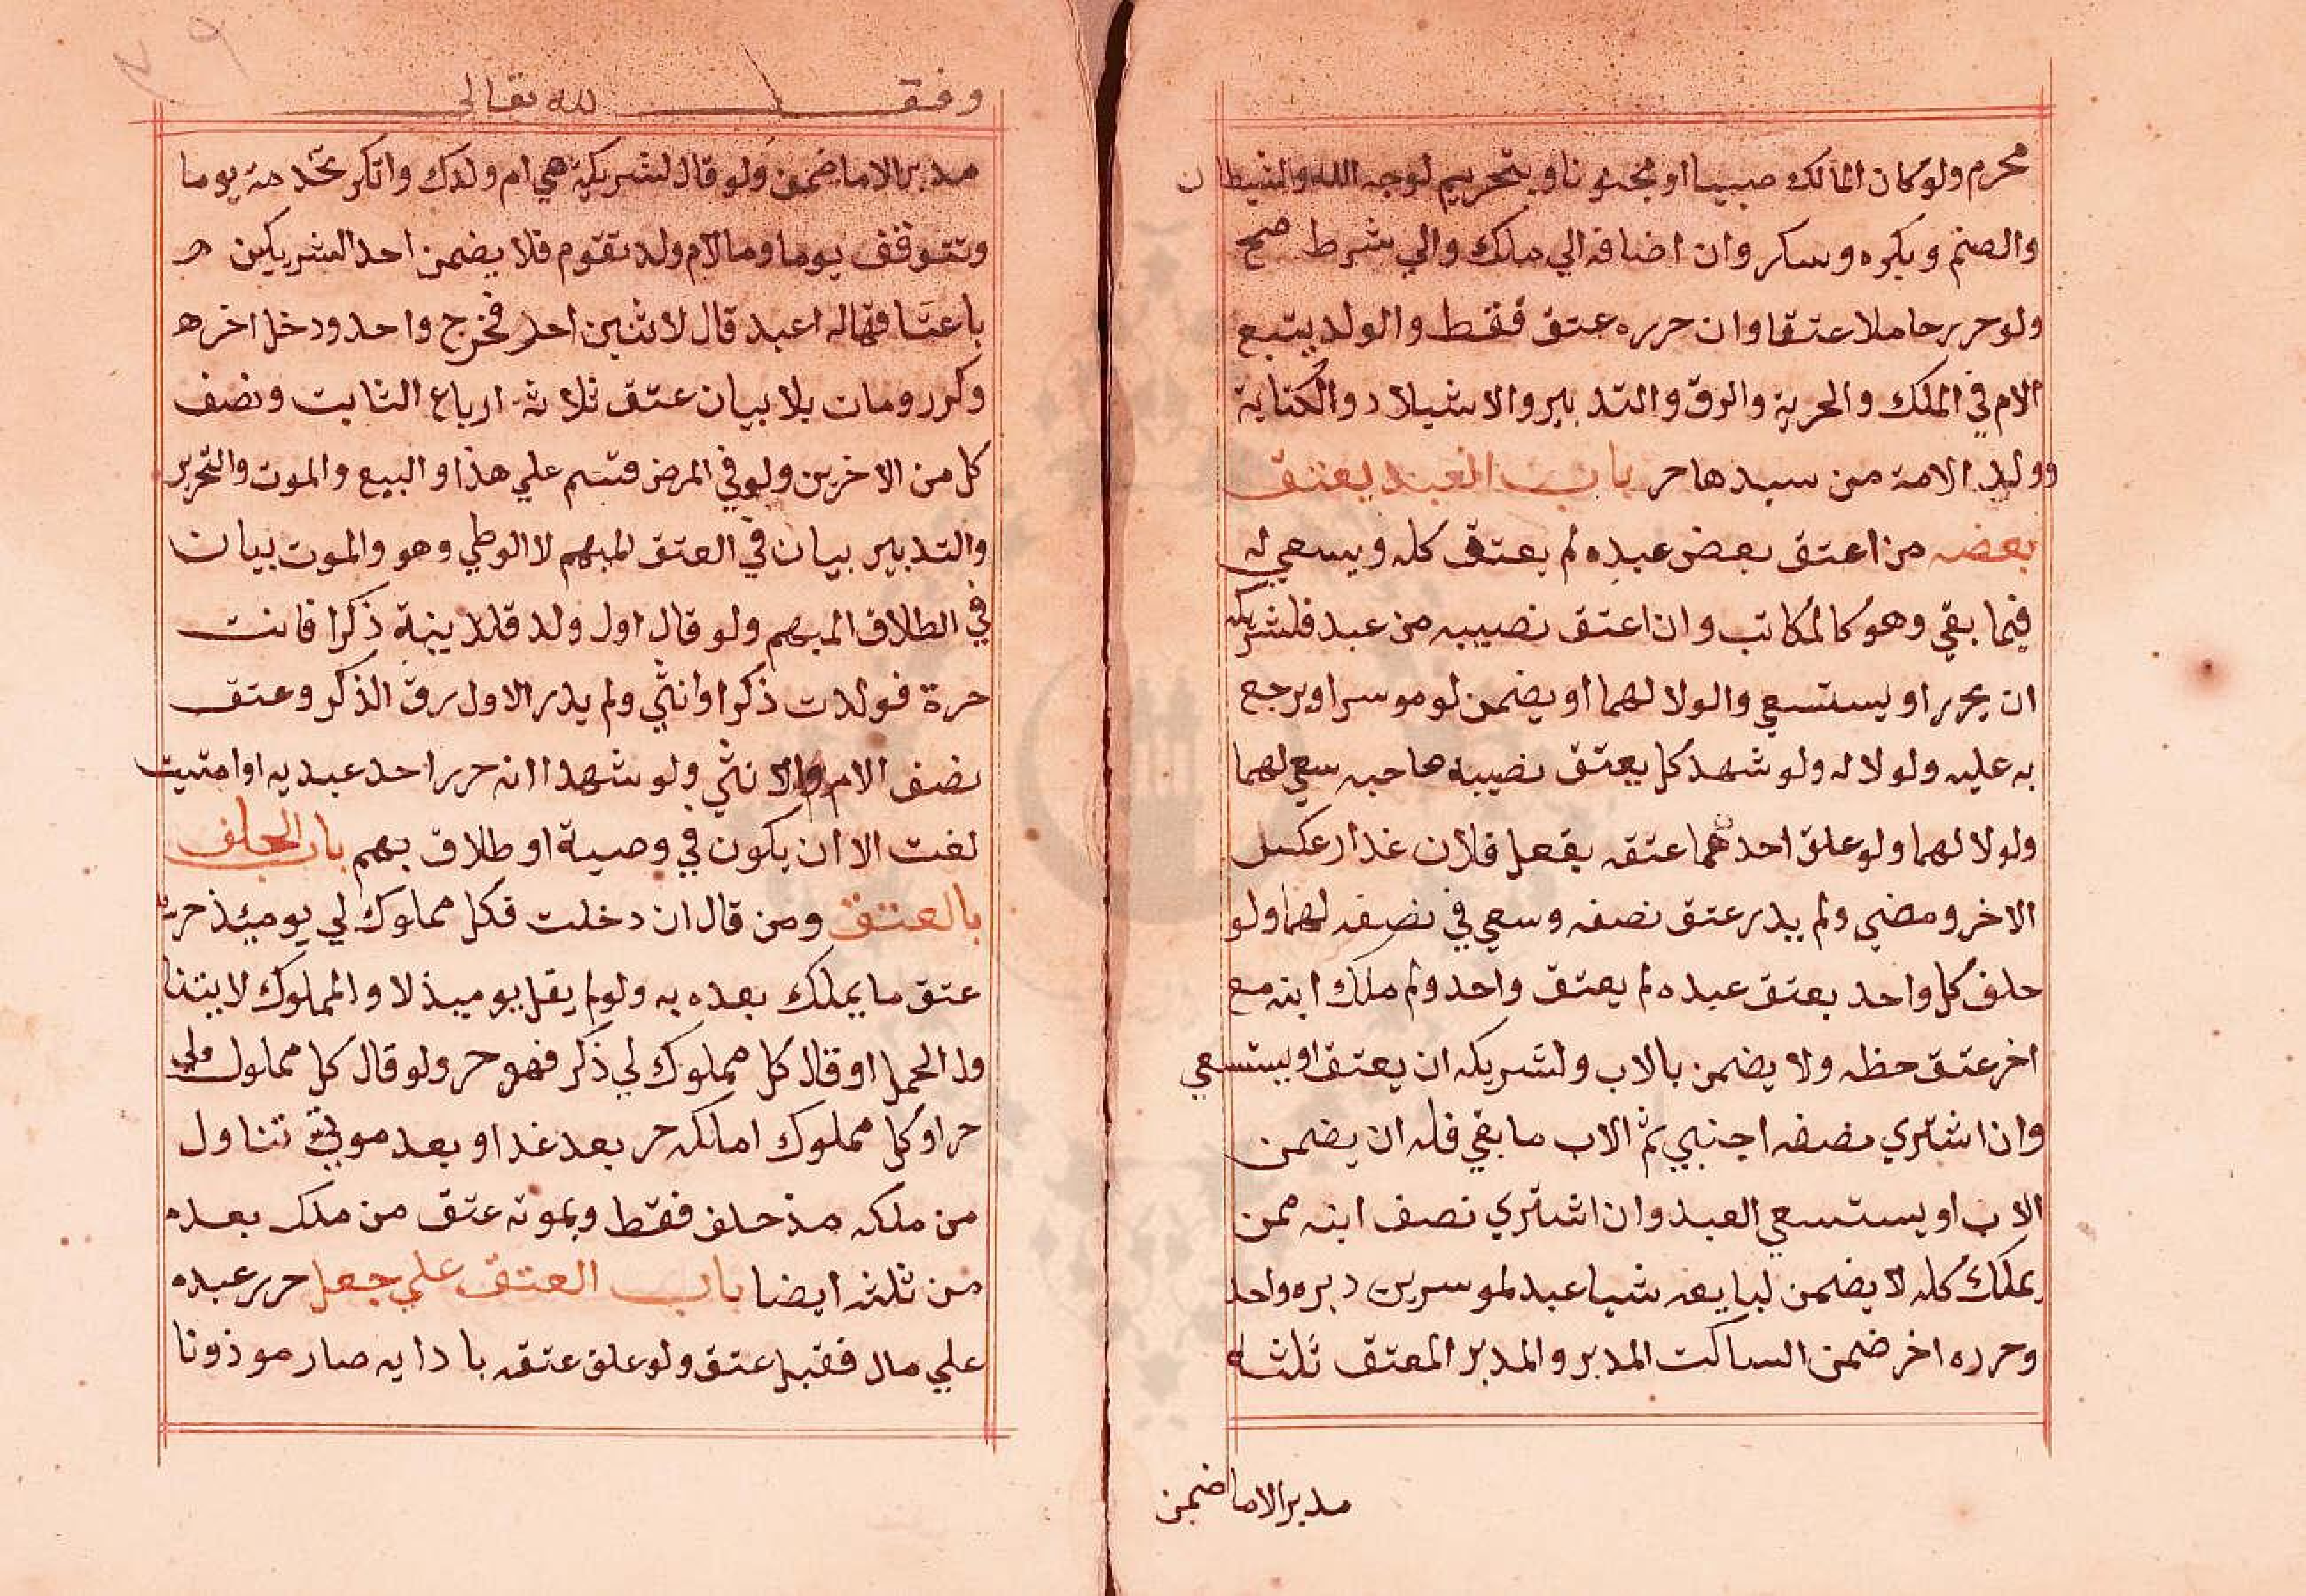 محرم ولو كان المالك صبيا او مجنونا وبتحرير لوجه الله والشيطان
والصنم وبكره وسكر وان اضافه الي ملك والي شرط صح
ولو حرر حاملا عتقا وان حرره عتق فقط والولد يتبع
الام في الملك والحرية والرق والتدبير والاستيلاد والكتابة
وولد الامة من سيدها حر باب العبد يعتق
بعضه من اعتق بعض عبده لم يعتق كله ويسعي له
فيما بقي وهو كالمكاتب وان اعتق نصيبه من عبد فلشريكه
ان يحرر او يستسعي والولا لهما او يضمن لو موسرا ويرجع
به عليه ولولا له ولو شهد كل بعتق نصيبه صاحبه سعي لهما
ولولا لهما ولو علق احدهما عتقه بفعل فلان غدا وعكس
الاخر ومضي ولم يدر عتق نصفه وسعي في نصفه لهما ولو
حلف كل واحد بعتق عبده لم يعتق واحد ولم ملك ابنه مع
اخر عتق حظه ولا يضمن بالاب ولشريكه ان يعتق او يستسعي
وان اشتري نصفه اجنبي ثم الاب ما بقي فله ان يضمن
الاب او يستسعي العبد وان اشتري نصف ابنه ممن
يملك كله لا يضمن لبايعه شيا عبد لموسرين دبره واحد
وحرره اخر ضمن الساكت المدبر والمدبر المعتق ثلثه
مدبرا لا ما ضمن
وقف لله تعالى
مدبرا لا ما ضمن ولو قال لشريكه هي ام ولدك وانكر تخدمه يوما
وتتوقف يوما وما لام ولد تقوم فلا يضمن احد الشريكين
باعتاقها له اعبد قال لاثنين احد فخرج واحد ودخل اخر
وكرر ومات بلا بيان عتق ثلاثة ارباع الثابت ونصف
كل من الاخرين ولو في المرض قسم علي هذا والبيع والموت والتحرير
والتدبير بيان في العتق المبهم لا الوطي وهو والموت بيان
في الطلاق المبهم ولو قال اول ولد تلدينة ذكرا فانت
حرة فولدت ذكرا وانثي ولم يدر الاول رق الذكر وعتق
نصف الام والانثي ولو شهدا انه حرر احد عبديه او امتيه
لغت الا ان يكون في وصية او طلاق بهم باب الحلف
بالعتق ومن قال ان دخلت فكل مملوك لي يوميذ حر
عتق ما يملك بعده به ولو لم يقل يوميذ لا والمملوك لا يتنا
ول الحمل او قال كل مملوك لي ذكر فهو حر ولو قال كل مملوك لي
حر او كل مملوك املكه حر بعد غد او بعد موتي تناول
من ملكه مذ حلف فقط وبموته عتق من ملك بعده
من ثلثه ايضا باب العتق علي جعل حرر عبده
علي مال فقبل عتق ولو علق عتقه بادايه صار موذونا